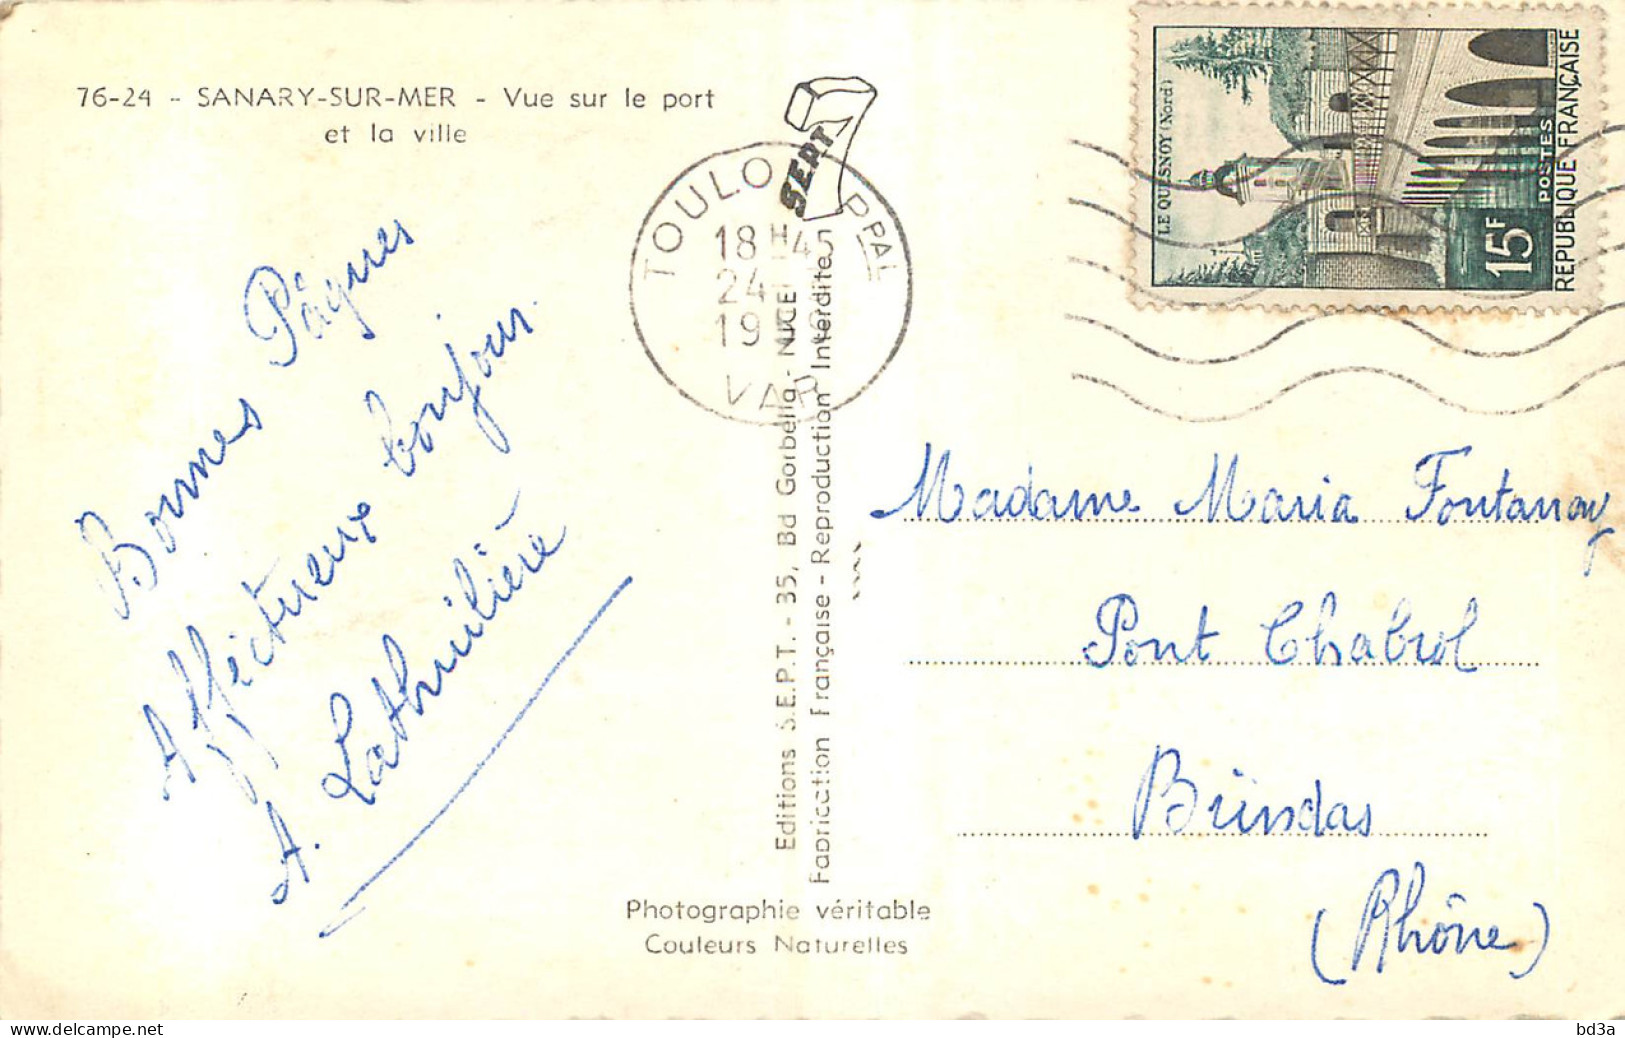 76-24 - SANARY-SUR-MER - Vue sur le port
et la ville
SEPT
TOULON PPAL
18H45
24
19
VAR
LE QUESNOY (Nord)
15F
POSTES
REPUBLIQUE FRANÇAISE
Bonnes Pâques
Affectueux bonjour.
A. Lathuilière
Editions S.E.P.T. - 35, Bd Gorbella - NICE
Fabrication Française - Reproduction Interdite
Madame Maria Fontanay
Pont Chabrol
Brindas
(Rhône)
Photographie véritable
Couleurs Naturelles
delcampe.net
bd3a